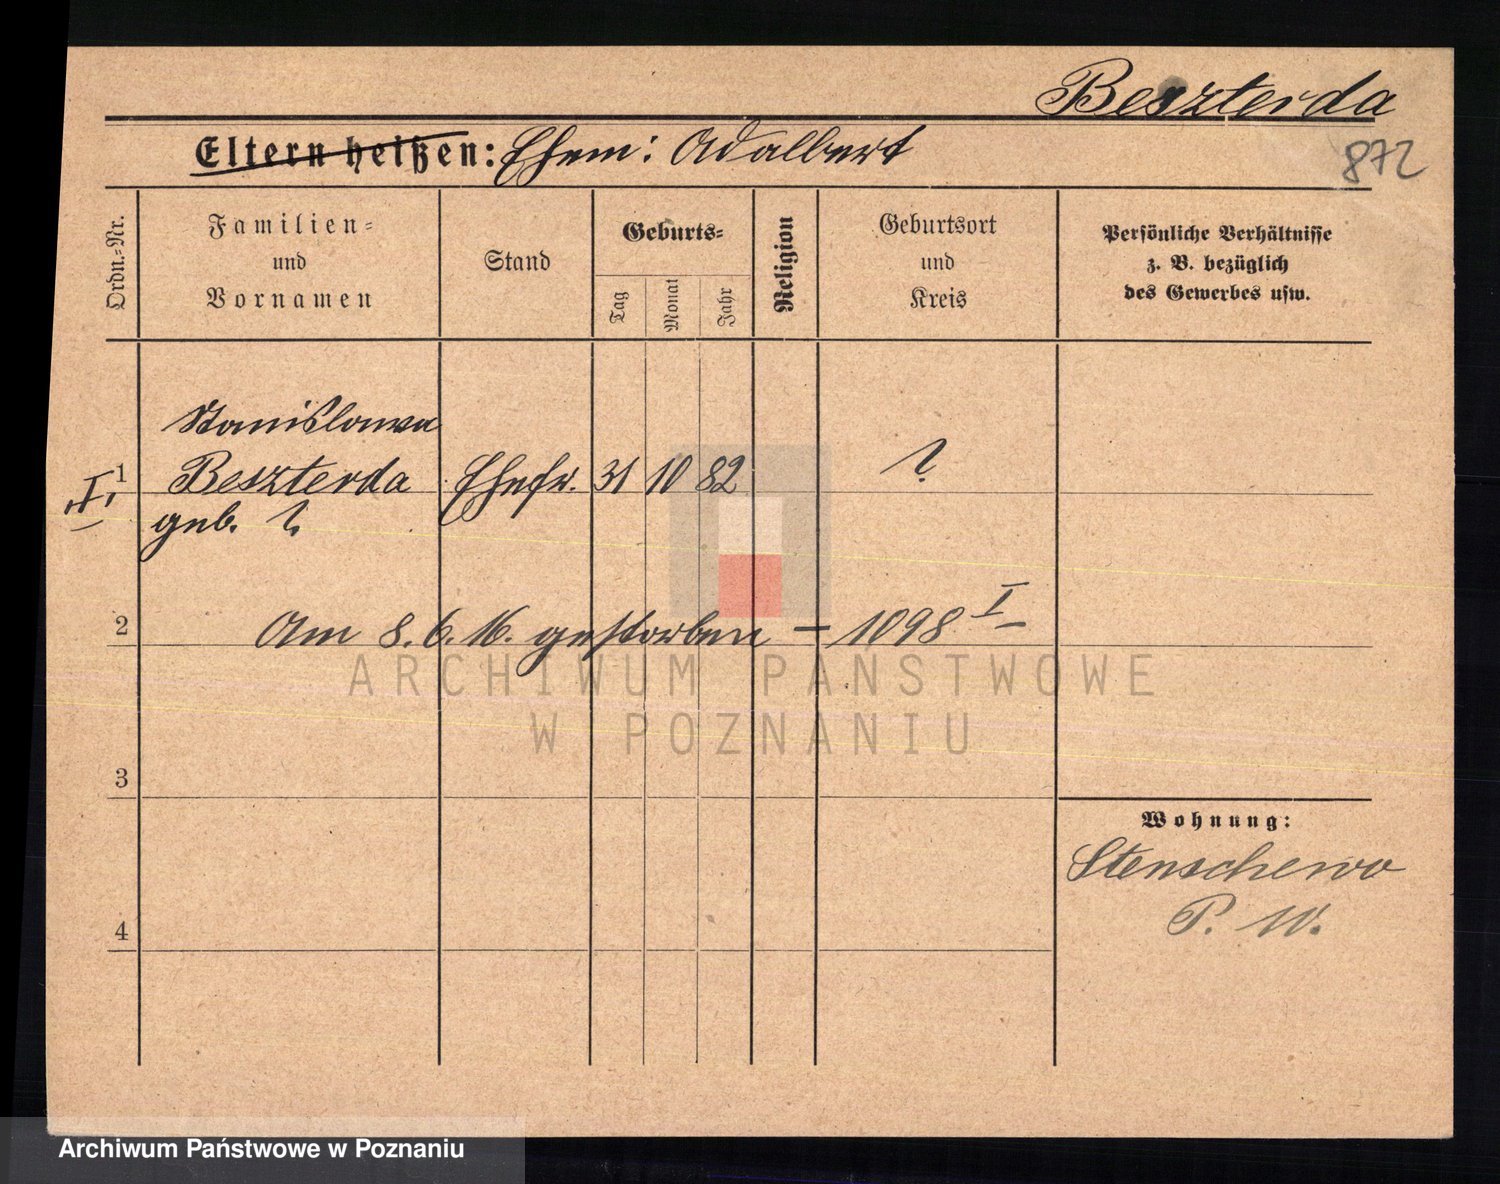 Beszterda
Eltern heißen: Ehem: Adalbert
872
Ordn.-Nr.
Familien-
und
Vornamen
Stand
Geburts-
Tag
Monat
Jahr
Religion
Geburtsort
und
Kreis
Persönliche Verhältnisse
z. B. bezüglich
des Gewerbes usw.
Stanislawa
I. 1 Beszterda Ehefr. 31 10 82 ?
geb. ?
2 Am 8.6.16. gestorben – 1098 I
ARCHIWUM PAŃSTWOWE
W POZNANIU
3
Wohnung:
Stenschewo
P. W.
4
Archiwum Państwowe w Poznaniu